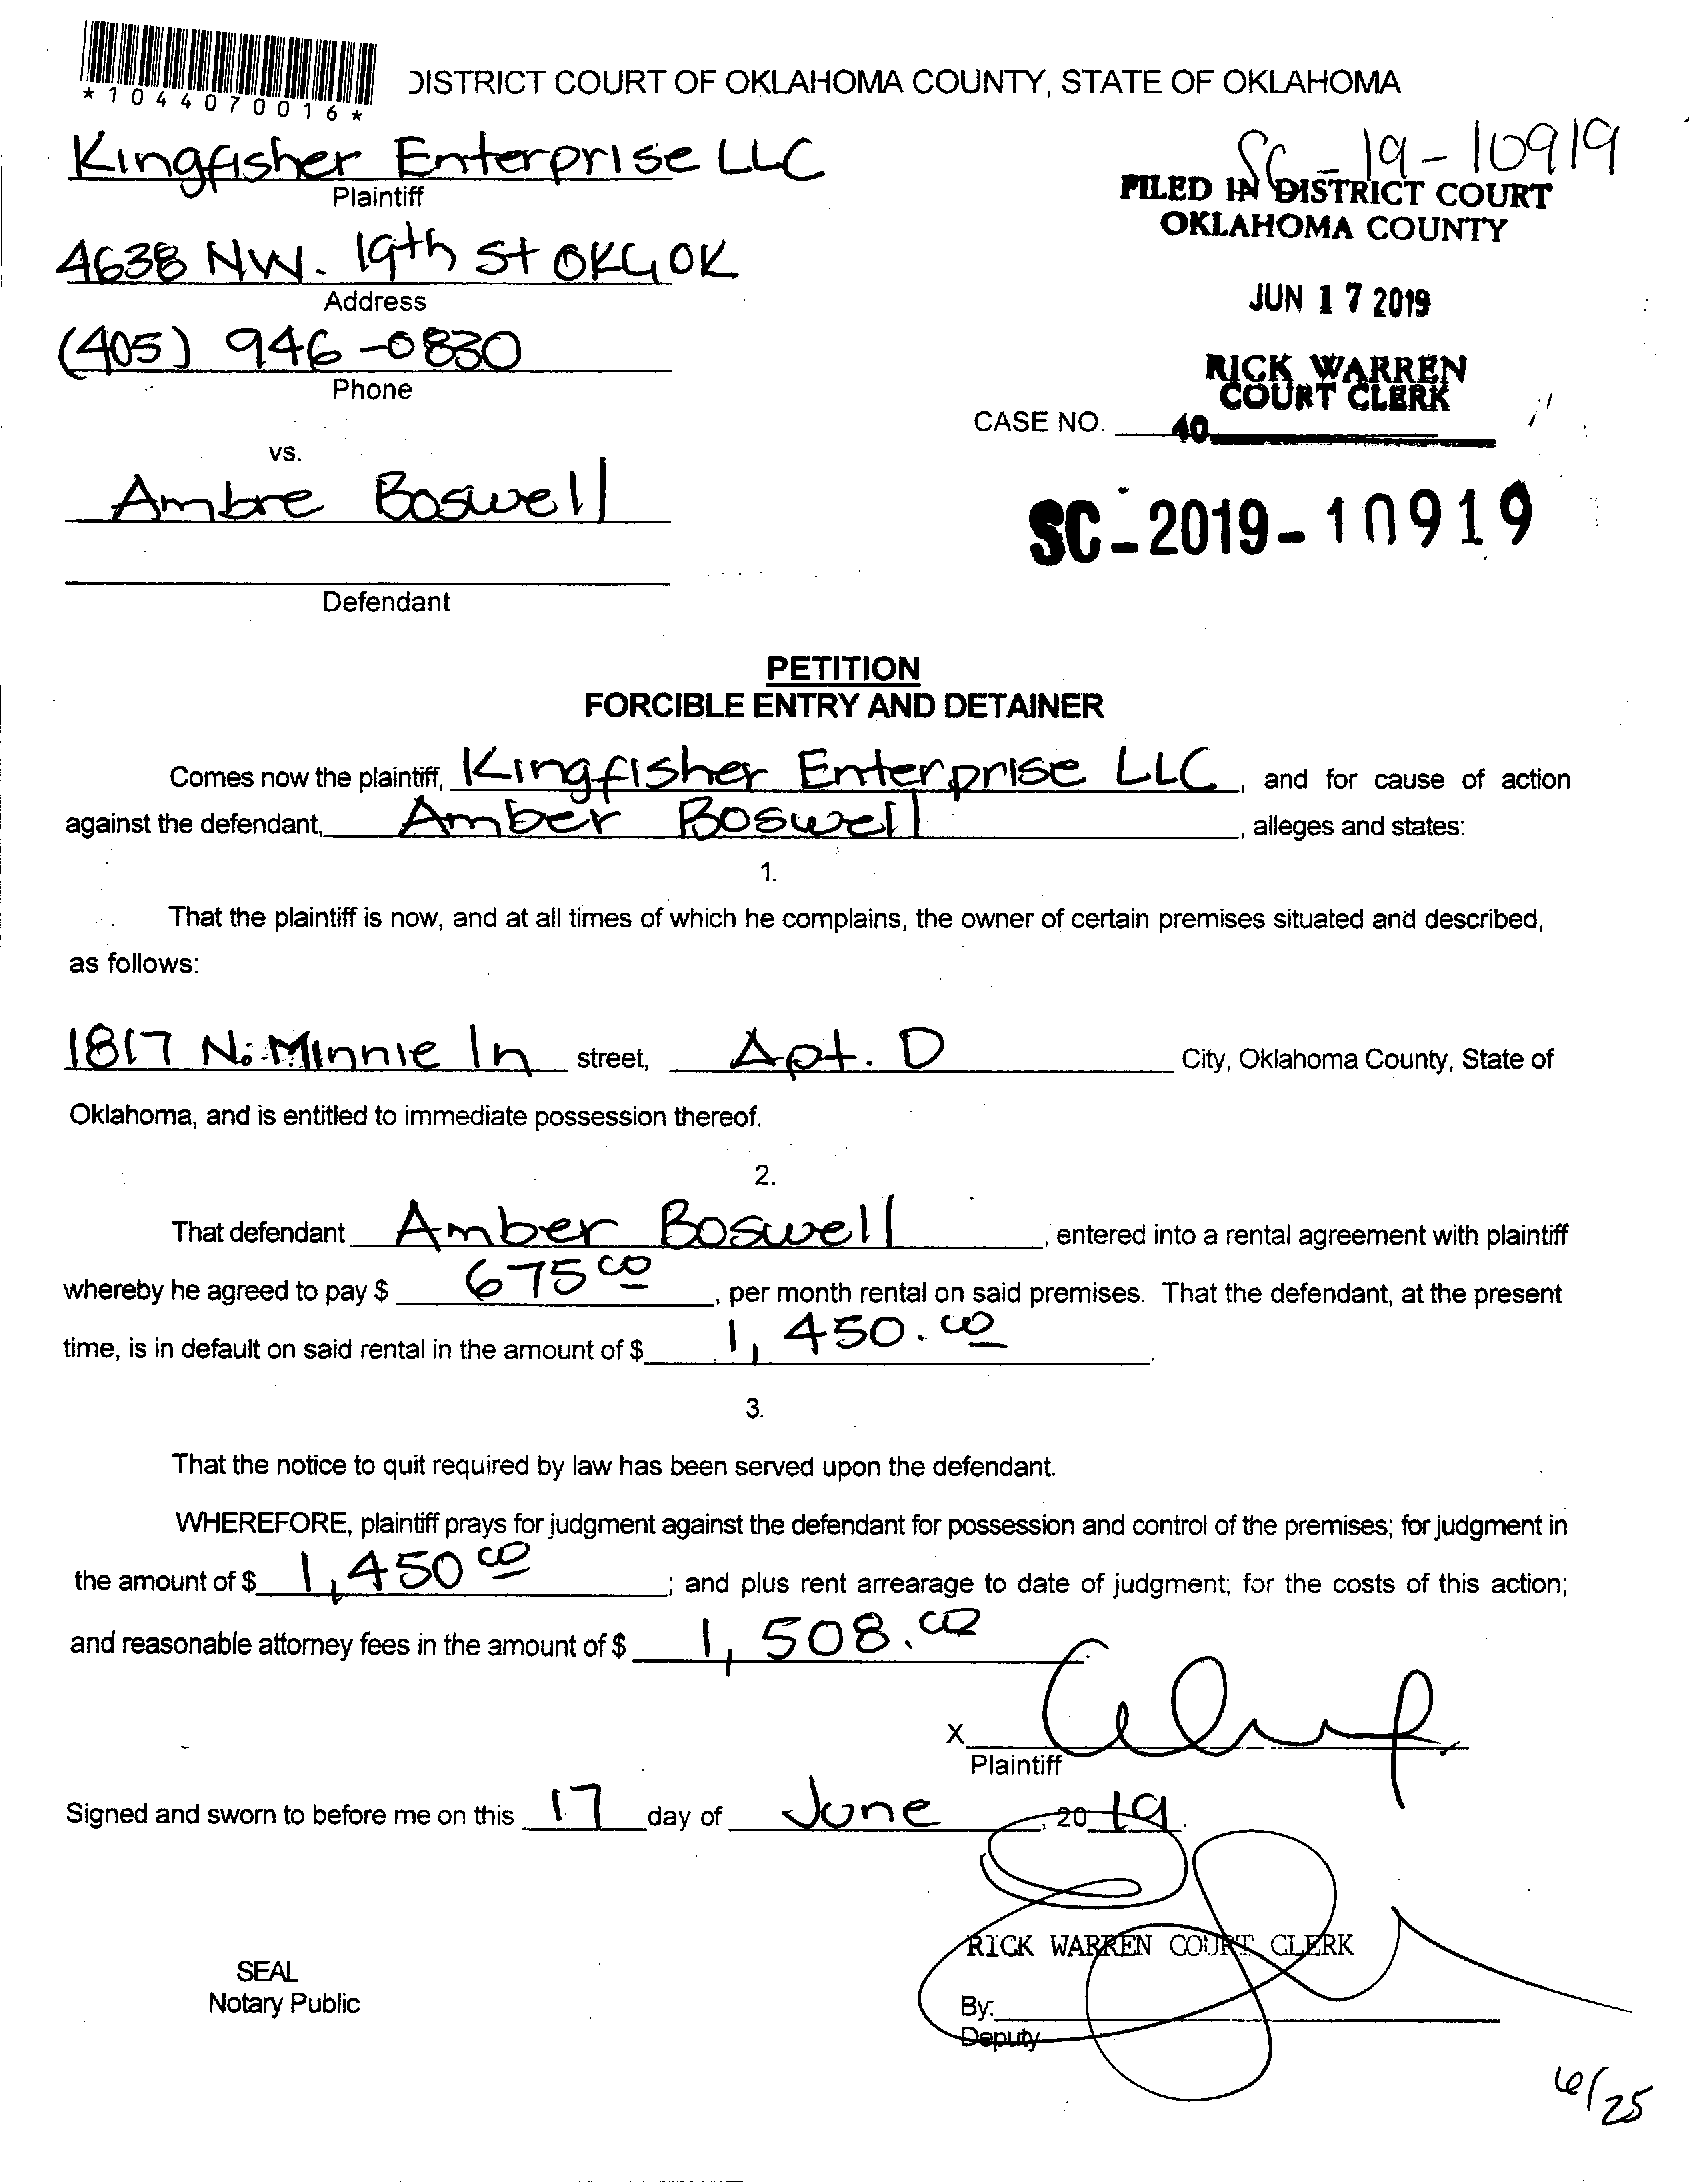 *1044070016*
DISTRICT COURT OF OKLAHOMA COUNTY, STATE OF OKLAHOMA
Kingfisher Enterprise LLC
Plaintiff
SC-19-10919
FILED IN DISTRICT COURT
OKLAHOMA COUNTY
4638 NW. 19th St OKC, OK
Address
JUN 17 2019
(405) 946-0830
Phone
RICK WARREN
COURT CLERK
CASE NO. 40
vs.
Ambre Boswell
SC-2019-10919
Defendant
PETITION
FORCIBLE ENTRY AND DETAINER
Comes now the plaintiff, Kingfisher Enterprise LLC, and for cause of action
against the defendant, Amber Boswell, alleges and states:
1.
That the plaintiff is now, and at all times of which he complains, the owner of certain premises situated and described,
as follows:
1817 N. Minnie ln street, Apt. D City, Oklahoma County, State of
Oklahoma, and is entitled to immediate possession thereof.
2.
That defendant Amber Boswell, entered into a rental agreement with plaintiff
whereby he agreed to pay $ 675 00, per month rental on said premises. That the defendant, at the present
time, is in default on said rental in the amount of $ 1,450.00.
3.
That the notice to quit required by law has been served upon the defendant.
WHEREFORE, plaintiff prays for judgment against the defendant for possession and control of the premises; for judgment in
the amount of $ 1,450 00; and plus rent arrearage to date of judgment; for the costs of this action;
and reasonable attorney fees in the amount of $ 1,508.00
X
Plaintiff
Signed and sworn to before me on this 17 day of June, 2019.
RICK WARREN COURT CLERK
SEAL
Notary Public
By:
Deputy
6/25